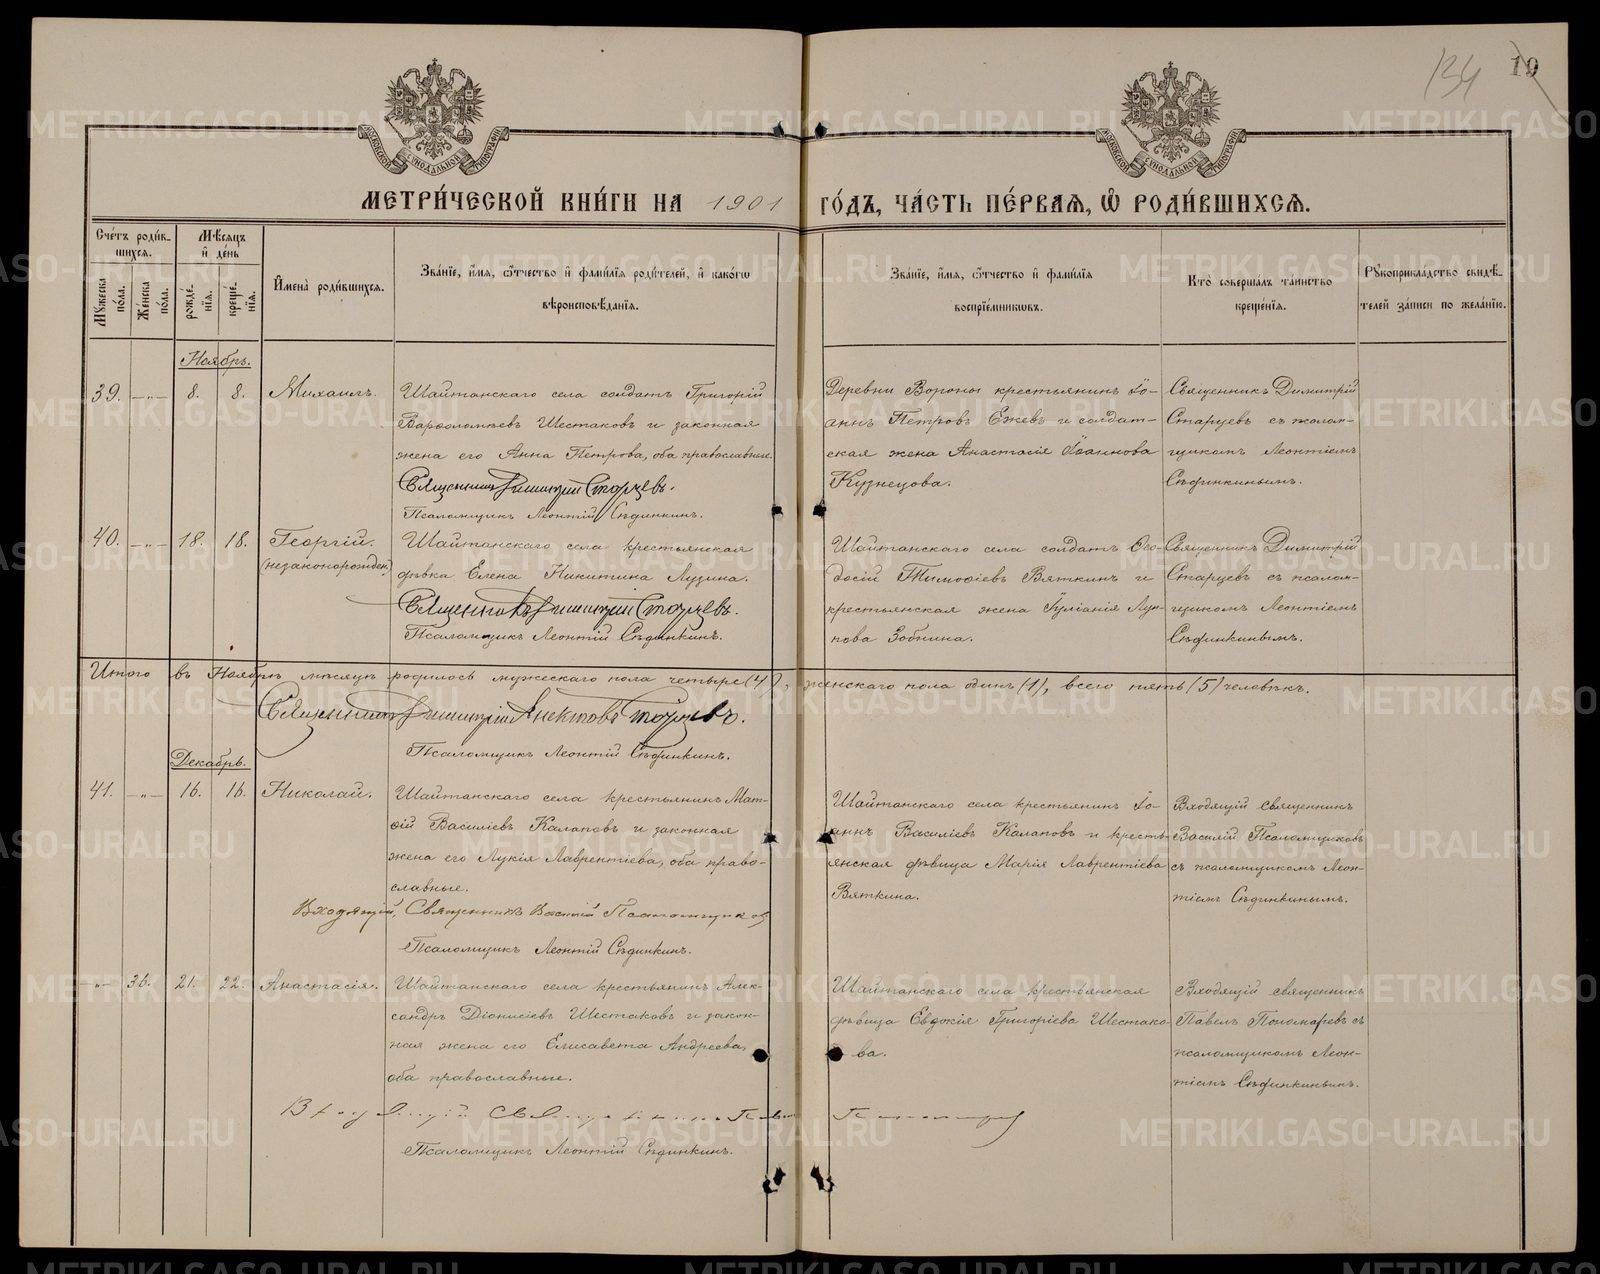 134 19
МЕТРИ́ЧЕСКОЙ КНИ́ГИ НА 1901 ГО́ДЪ, ЧА́СТЬ ПЕ́РВАЯ, Ѡ҆ РОДИ́ВШИХСЯ.
Сче́тъ роди́в-
шихся.
Мѣ́сяцъ
и҆ де́нь
Мꙋ́жеска по́ла.
Же́нска по́ла.
рожде́-
нїя.
креще́-
нїя.
И҆мена̀ роди́вшихся.
Зва́нїе, и҆́мя, ѻ҆́тчество и҆ фами́лїя роди́телей, и҆ како́гѡ
вѣроисповѣ́данїя.
Зва́нїе, и҆́мя, ѻ҆́тчество и҆ фами́лїя
воспрїе́мниковъ.
Кто̀ соверша́лъ та́инство
креще́нїя.
Рꙋкоприкла́дство свидѣ́-
телей за́писи по жела́нїю.
Ноябрь.
39. —„— 8. 8. Михаилъ.
Шайтанскаго села солдатъ Григорій
Варѳоломѣевъ Шестаковъ и законная
жена его Анна Петрова, оба православные.
Священникъ Димитрій Старцевъ.
Псаломщикъ Леонтій Сѣдинкинъ.
Деревни Вороны крестьянинъ Іо-
аннъ Петровъ Ежевъ и солдат-
ская жена Анастасія Іоаннова
Кузнецова.
Священникъ Димитрій
Старцевъ съ псалом-
щикомъ Леонтіемъ
Сѣдинкинымъ.
40. —„— 18. 18. Георгій.
(незаконорожден.)
Шайтанскаго села крестьянская
дѣвка Елена Никитина Лузина.
Священникъ Димитрій Старцевъ.
Псаломщикъ Леонтій Сѣдинкинъ.
Шайтанскаго села солдатъ Ѳео-
досій Тимоѳіевъ Вяткинъ и
крестьянская жена Іуліанія Лук-
пова Зобнина.
Священникъ Димитрій
Старцевъ съ псалом-
щикомъ Леонтіемъ
Сѣдинкинымъ.
Итого въ Ноябрѣ мѣсяцѣ родилось мужескаго пола четыре (4), женскаго пола одинъ (1), всего пять (5) человѣкъ.
Священникъ Димитрій Старцевъ.
Псаломщикъ Леонтій Сѣдинкинъ.
Декабрь.
41. —„— 16. 16. Николай.
Шайтанскаго села крестьянинъ Мат-
ѳій Василіевъ Калаповъ и законная
жена его Лукія Лаврентіева, оба право-
славные.
Входящій Священникъ Василій Псаломщиковъ
Псаломщикъ Леонтій Сѣдинкинъ.
Шайтанскаго села крестьянинъ Іо-
аннъ Василіевъ Калаповъ и кресть-
янская дѣвица Марія Лаврентіева
Вяткина.
Входящій священникъ
Василій Псаломщиковъ
съ псаломщикомъ Леон-
тіемъ Сѣдинкинымъ.
—„— 36. 21. 22. Анастасія.
Шайтанскаго села крестьянинъ Алек-
сандръ Діонисіевъ Шестаковъ и закон-
ная жена его Елисавета Андреева,
оба православные.
Входящій Священникъ Павелъ Пономаревъ
Псаломщикъ Леонтій Сѣдинкинъ.
Шайтанскаго села крестьянская
дѣвица Евдокія Григоріева Шестако-
ва.
Входящій священникъ
Павелъ Пономаревъ съ
псаломщикомъ Леон-
тіемъ Сѣдинкинымъ.
METRIKI.GASO-URAL.RU